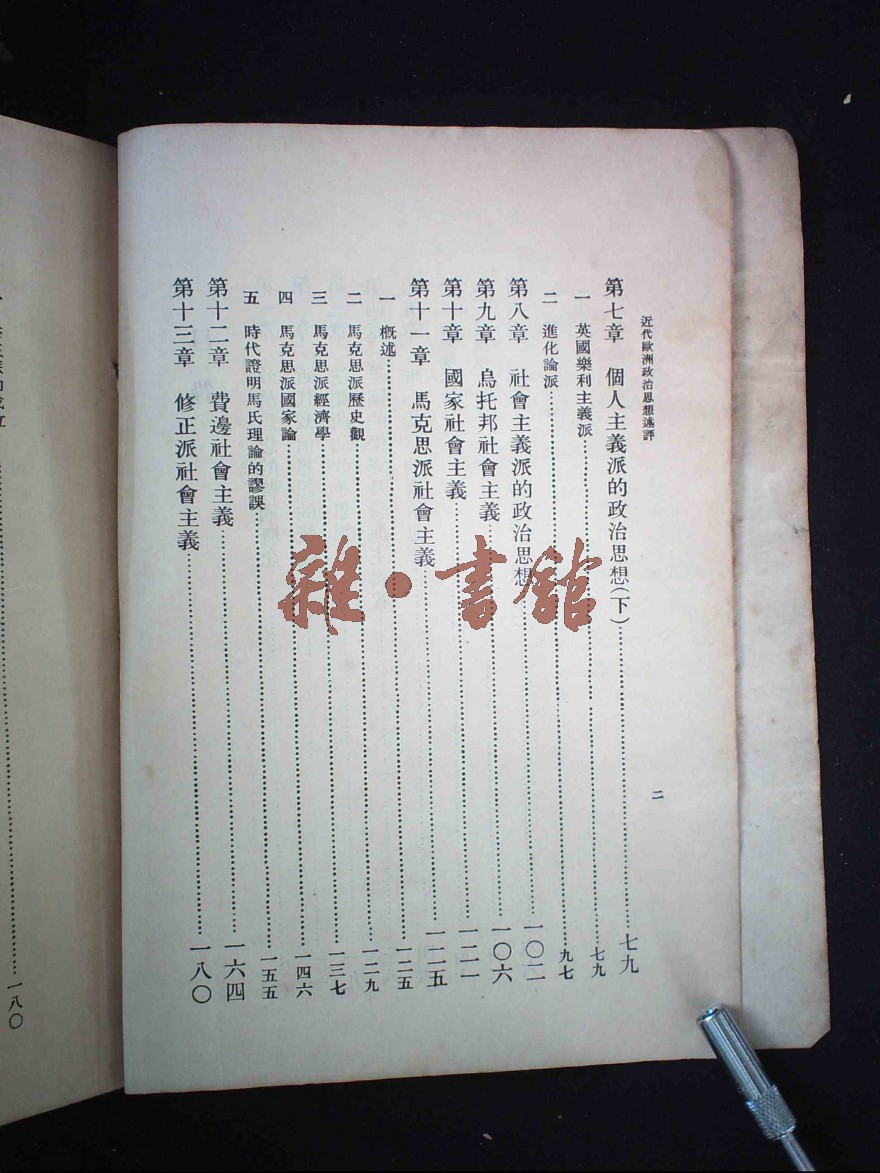 近代歐洲政治思想述評
二
第七章 個人主義派的政治思想(下)……七九
一 英國樂利主義派……七九
二 進化論派……九七
第八章 社會主義派的政治思想……一〇二
第九章 烏托邦社會主義……一〇六
第十章 國家社會主義……一二一
第十一章 馬克思派社會主義……一二五
一 概述……一二五
二 馬克思派歷史觀……一二九
三 馬克思派經濟學……一三七
四 馬克思派國家論……一四六
五 時代證明馬氏理論的謬誤……一五五
第十二章 費邊社會主義……一六四
第十三章 修正派社會主義……一八〇
一八〇
雜·書館